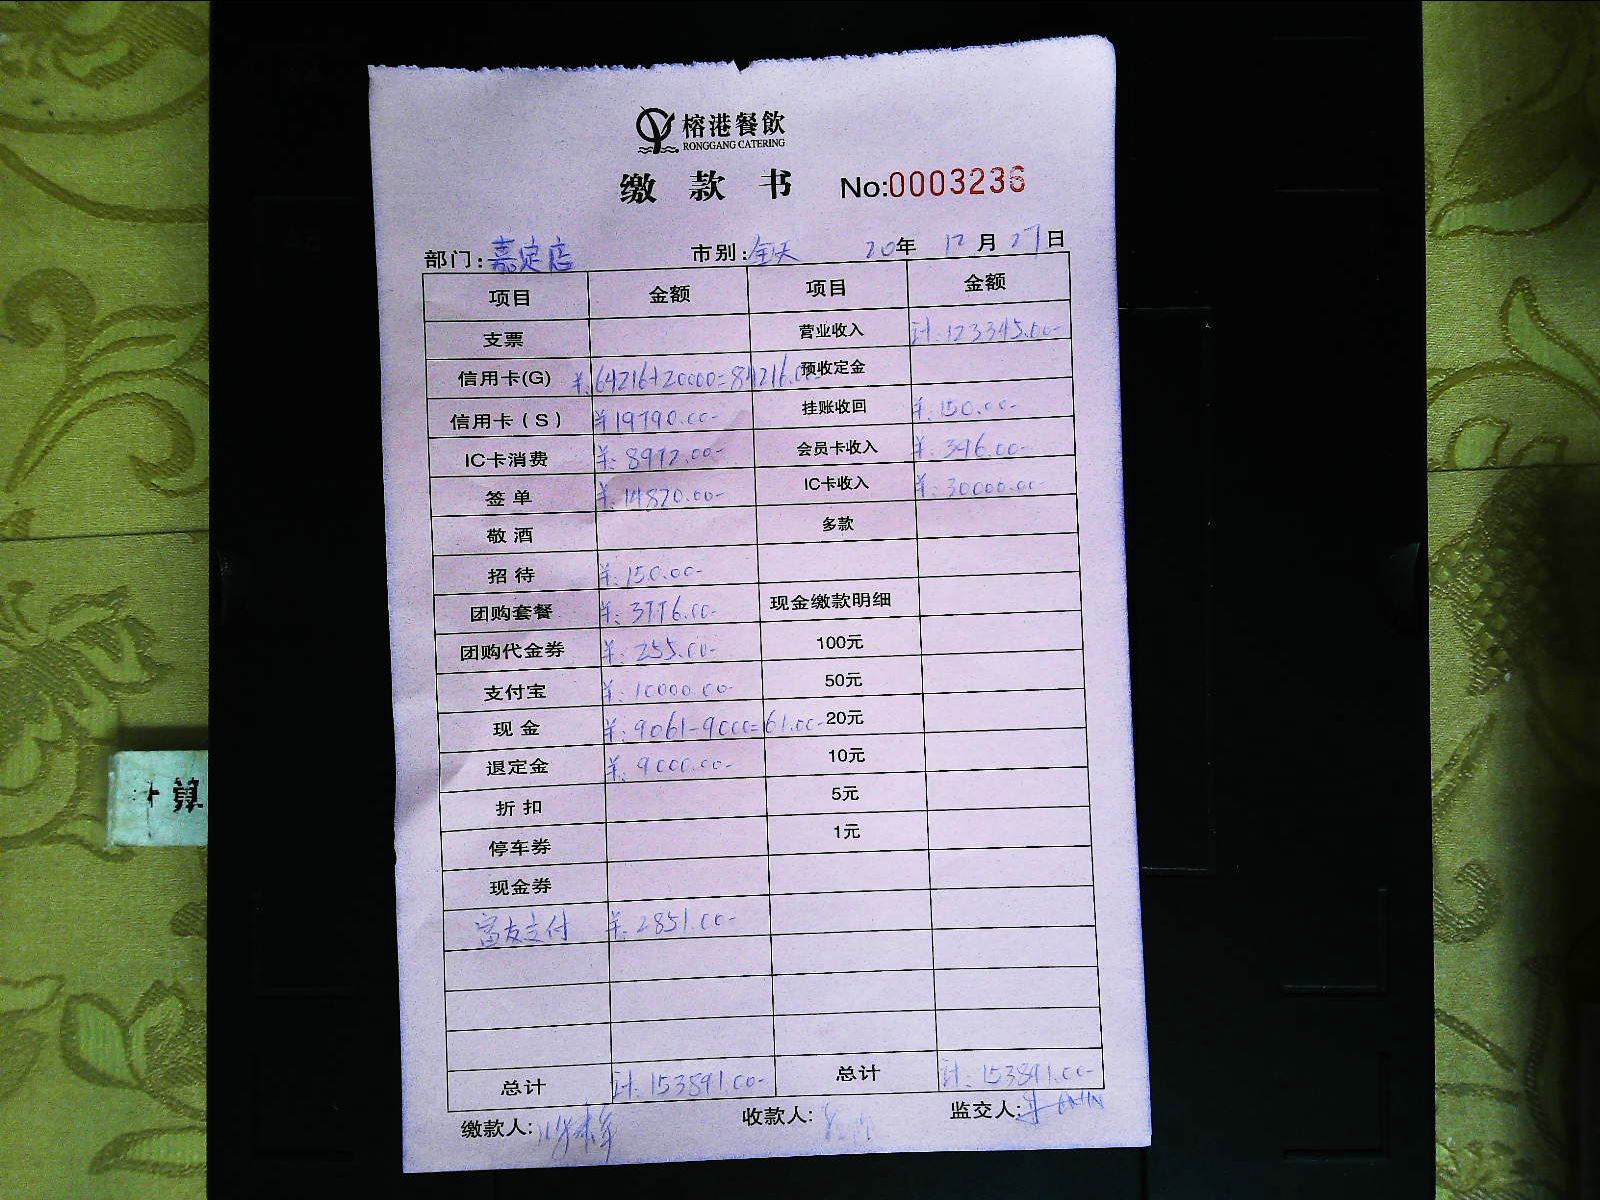 榕港餐飲
RONGGANG CATERING
缴款书 No:0003236
部门:嘉定店 市别:全天 20年 12月 27日
项目 金额 项目 金额
支票 营业收入 计:123345.00-
信用卡(G) ¥:64216+20000=84216.00- 预收定金
信用卡(S) ¥19790.00- 挂账收回 ¥:150.00-
IC卡消费 ¥:8972.00- 会员卡收入 ¥:396.00-
签单 ¥:14820.00- IC卡收入 ¥:30000.00-
敬酒 多款
招待 ¥:150.00-
团购套餐 ¥:3776.00- 现金缴款明细
团购代金券 ¥:255.00- 100元
支付宝 ¥:10000.00- 50元
现金 ¥:9061-9000=61.00- 20元
退定金 ¥:9000.00- 10元
折扣 5元
停车券 1元
现金券
富友支付 ¥:2851.00-
总计 计:153891.00- 总计 计:153891.00-
缴款人: 收款人: 监交人: